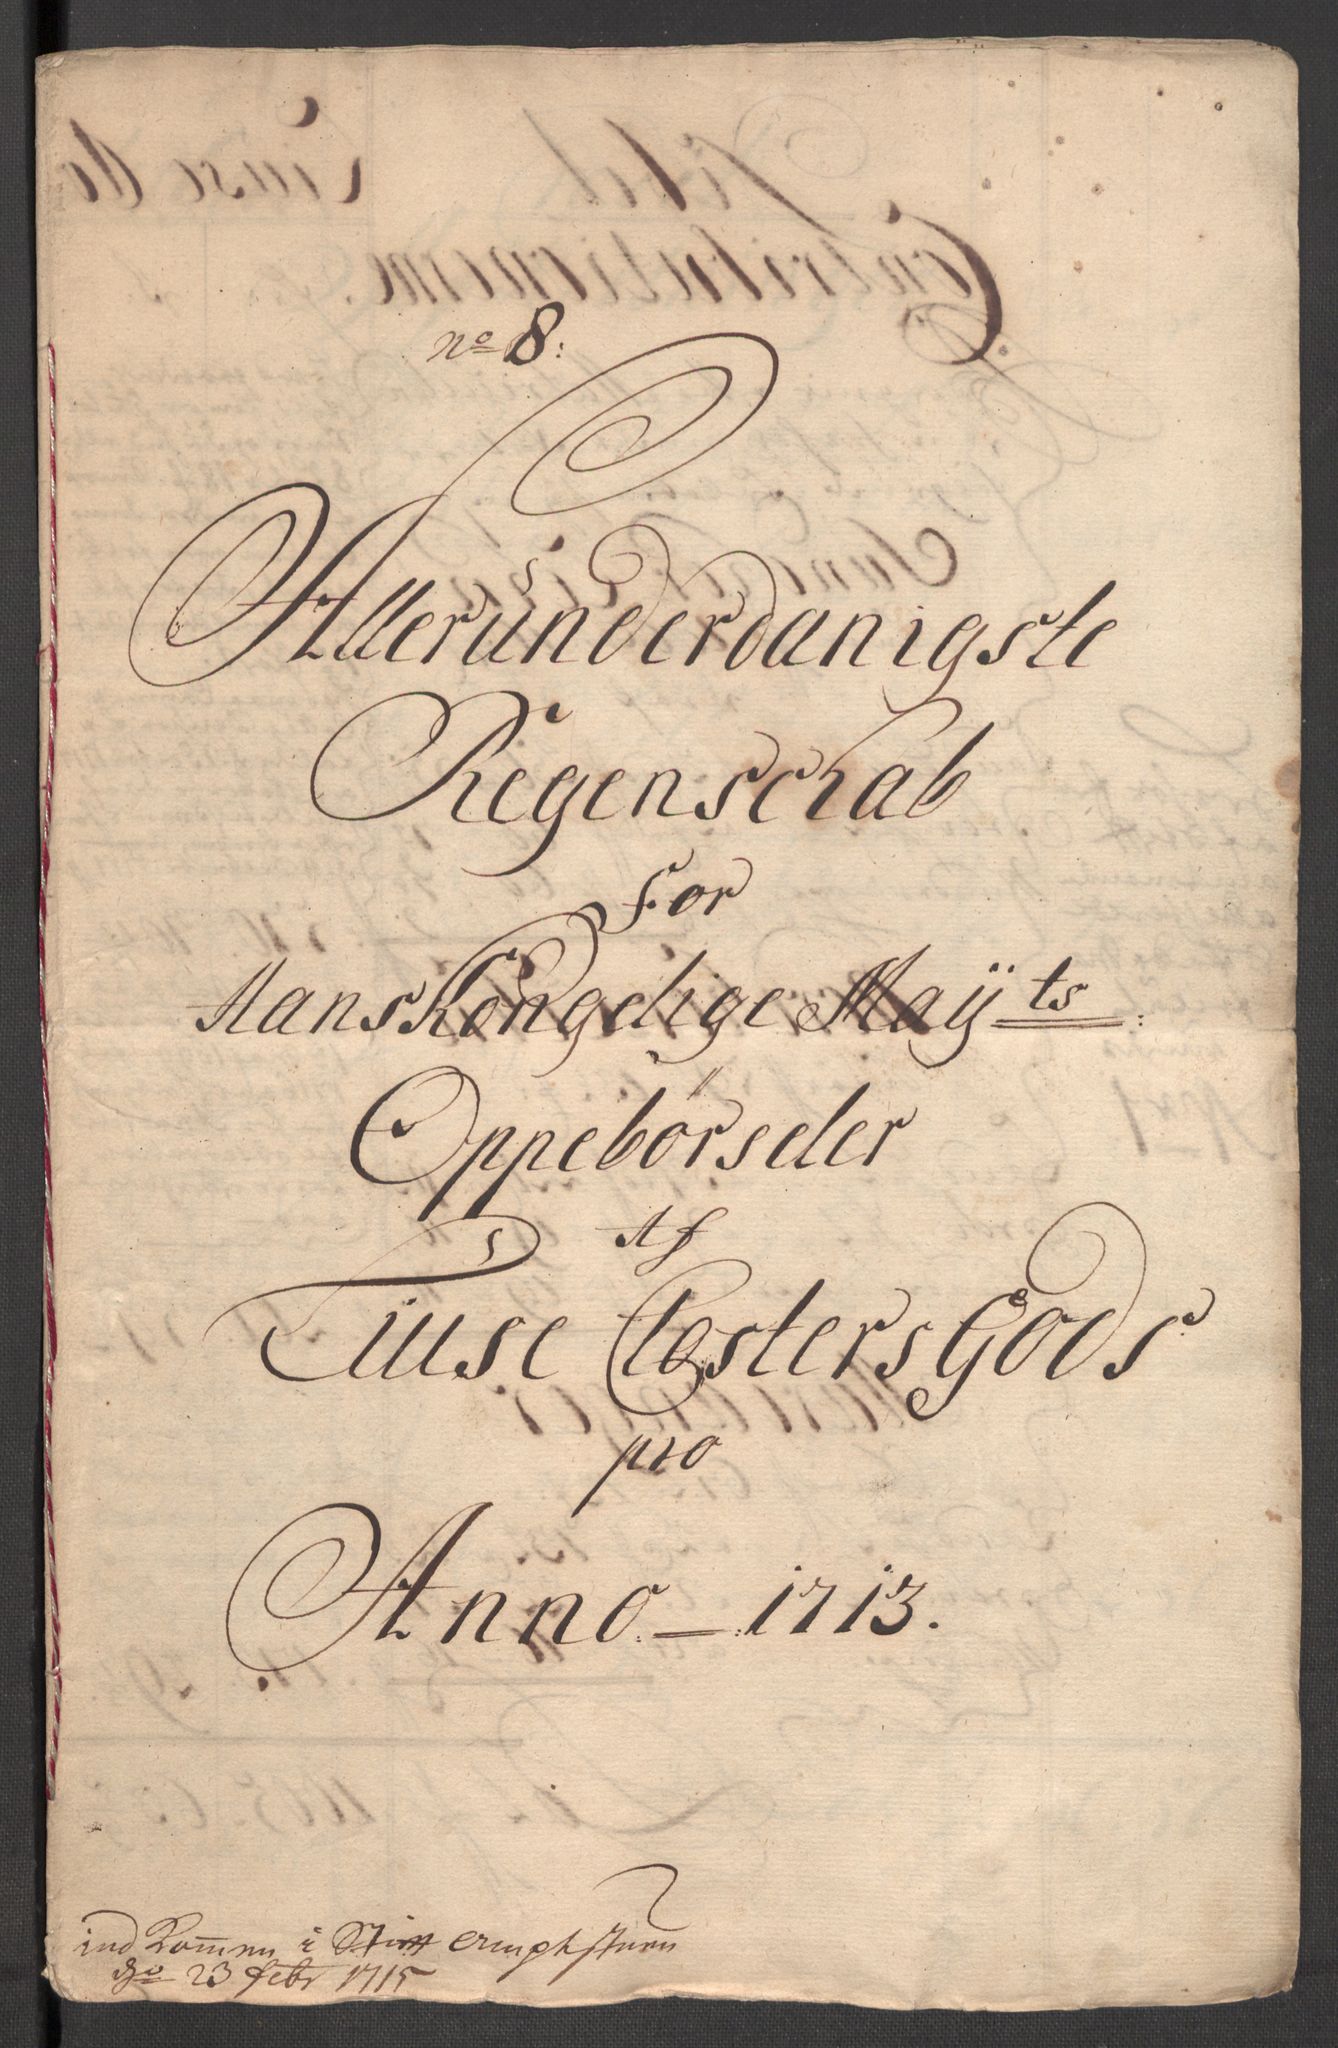 no 8:
Allerunderdanigste
Regenschab
For
Hans Kongelige Maÿts:
Oppebörseler
Af
Tiuse Closters Gods
pro
Anno - 1713.
ind kommen i Stift
do 23 febr 1715